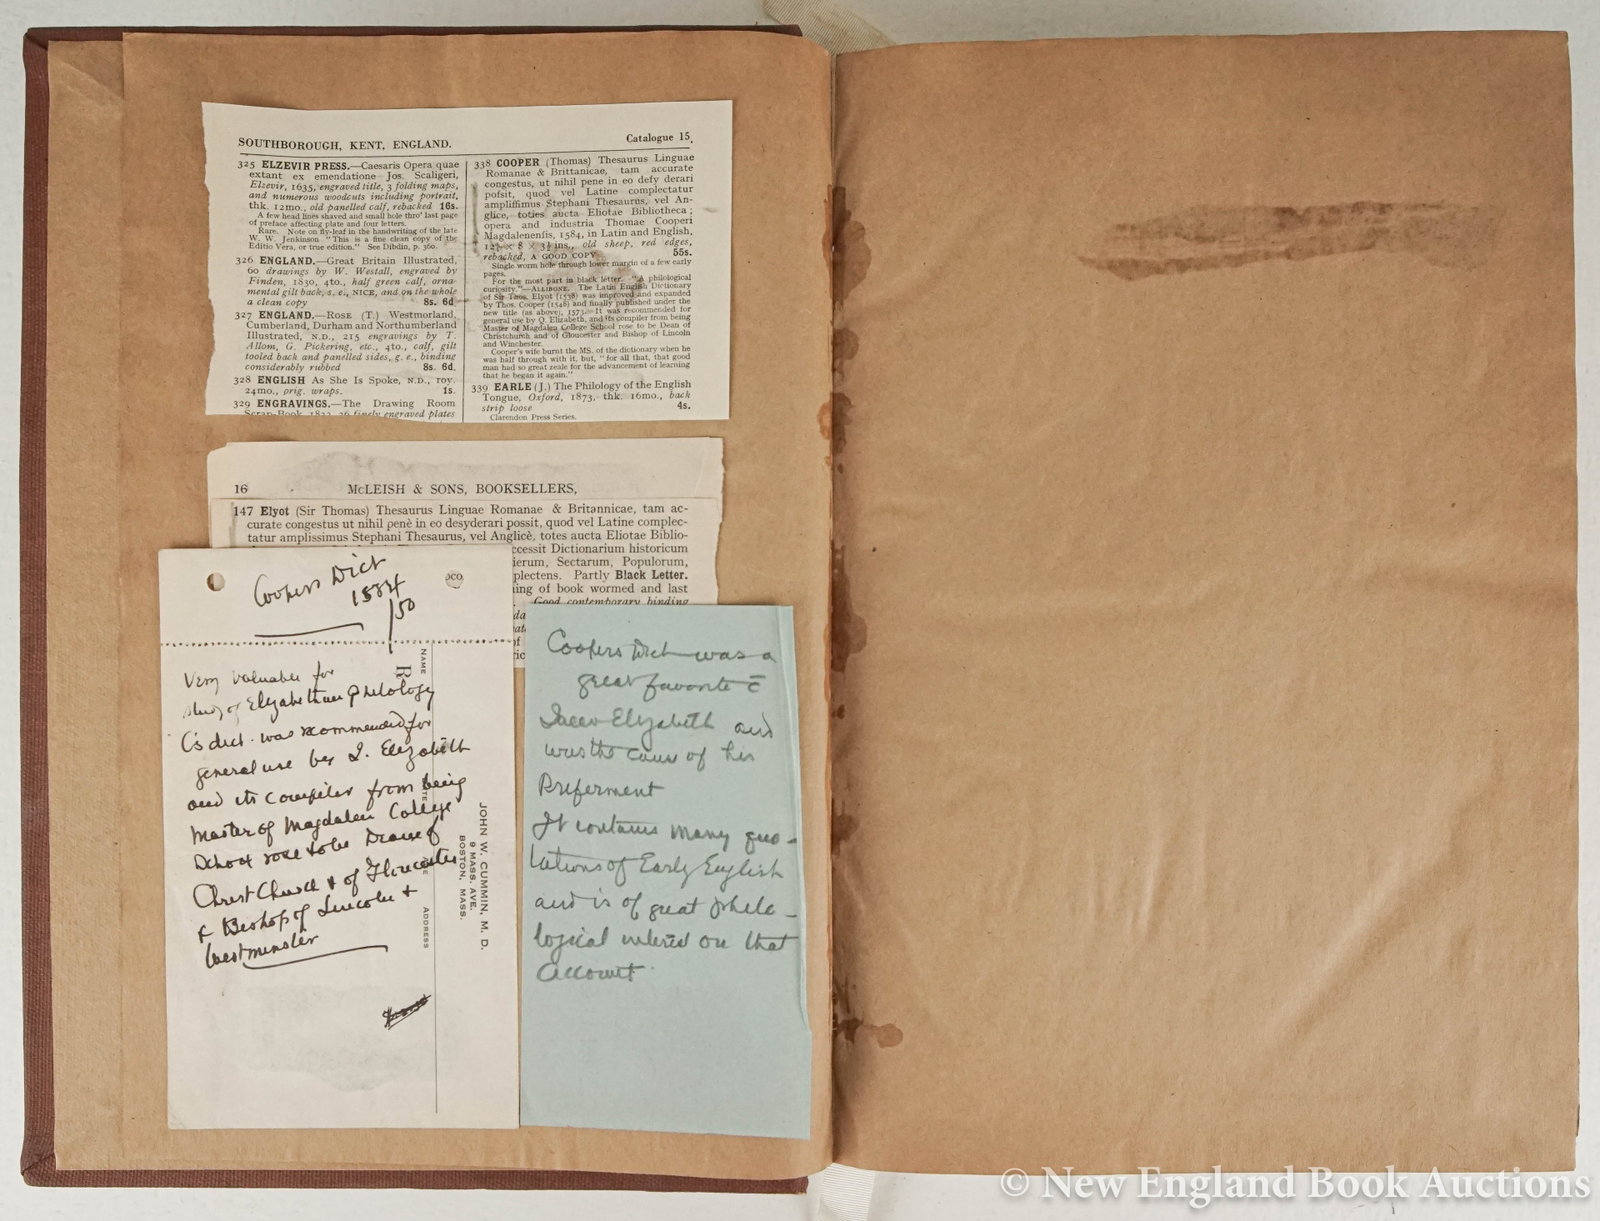 SOUTHBOROUGH, KENT, ENGLAND.
Catalogue 15.
325 ELZEVIR PRESS.—Caesaris Opera quae
extant ex emendatione Jos. Scaligeri,
Elzevir, 1635, engraved title, 3 folding maps,
and numerous woodcuts including portrait,
thk. 12mo., old panelled calf, rebacked 16s.
A few head lines shaved and small hole thro' last page
of preface affecting plate and four letters.
Rare. Note on fly-leaf in the handwriting of the late
W. W. Jenkinson "This is a fine clean copy of the
Editio Vera, or true edition." See Dibdin, p. 360.
326 ENGLAND.—Great Britain Illustrated,
60 drawings by W. Westall, engraved by
Finden, 1830, 4to., half green calf, orna-
mental gilt back, s. e., NICE, and on the whole
a clean copy 8s. 6d
327 ENGLAND.—ROSE (T.) Westmorland,
Cumberland, Durham and Northumberland
Illustrated, N.D., 215 engravings by T.
Allom, G. Pickering, etc., 4to., calf, gilt
tooled back and panelled sides, g. e., binding
considerably rubbed 8s. 6d.
328 ENGLISH As She Is Spoke, N.D., roy.
24mo., orig. wraps. 1s.
329 ENGRAVINGS.—The Drawing Room
Scrap-Book, 26 finely engraved plates
338 COOPER (Thomas) Thesaurus Linguae
Romanae & Brittanicae, tam accurate
congestus, ut nihil pene in eo defy derari
pofsit, quod vel Latine complectatur
ampliffimus Stephani Thesaurus, vel An-
glice, toties aucta Eliotae Bibliotheca;
opera and industria Thomae Cooperi
Magdalenenfis, 1584, in Latin and English,
12¾ × 8 × 3½ ins., old sheep, red edges,
rebacked, A GOOD COPY 55s.
Single worm hole through lower margin of a few early
pages.
For the most part in black letter. "A philological
curiosity."—ALLIBONE. The Latin English Dictionary
of Sir Thos. Elyot (1538) was improved and expanded
by Thos. Cooper (1548) and finally published under the
new title (as above), 1573. It was recommended for
general use by Q. Elizabeth, and its compiler from being
Master of Magdalen College School rose to be Dean of
Christchurch and of Gloucester and Bishop of Lincoln
and Winchester.
Cooper's wife burnt the MS. of the dictionary when he
was half through with it, but, "for all that, that good
man had so great zeale for the advancement of learning
that he began it again."
339 EARLE (J.) The Philology of the English
Tongue, Oxford, 1873, thk. 16mo., back
strip loose 4s.
Clarendon Press Series.
16 McLEISH & SONS, BOOKSELLERS,
147 Elyot (Sir Thomas) Thesaurus Linguae Romanae & Britannicae, tam ac-
curate congestus ut nihil penè in eo desyderari possit, quod vel Latine complec-
tatur amplissimus Stephani Thesaurus, vel Anglicè, totes aucta Eliotae Biblio-
ccessit Dictionarium historicum
ierum, Sectarum, Populorum,
plectens. Partly Black Letter.
ing of book wormed and last
Good contemporary binding
Coopers Dict
1584
/50
Very valuable for
study of Elizabethan Philology
C's dict. was recommended for
general use by Q. Elizabeth
and its compiler from being
Master of Magdalen College
School rose to be Deane of
Christ Church & of Gloucester
& Bishop of Lincoln &
Westminster
NAME
ADDRESS
JOHN W. CUMMIN, M. D.
9 MASS. AVE.
BOSTON, MASS.
Coopers Dict was a
great favorite c̄
Queen Elizabeth and
was the cause of his
Preferment
It contains many quo-
tations of Early English
and is of great phila-
logical interest on that
account.
© New England Book Auctions